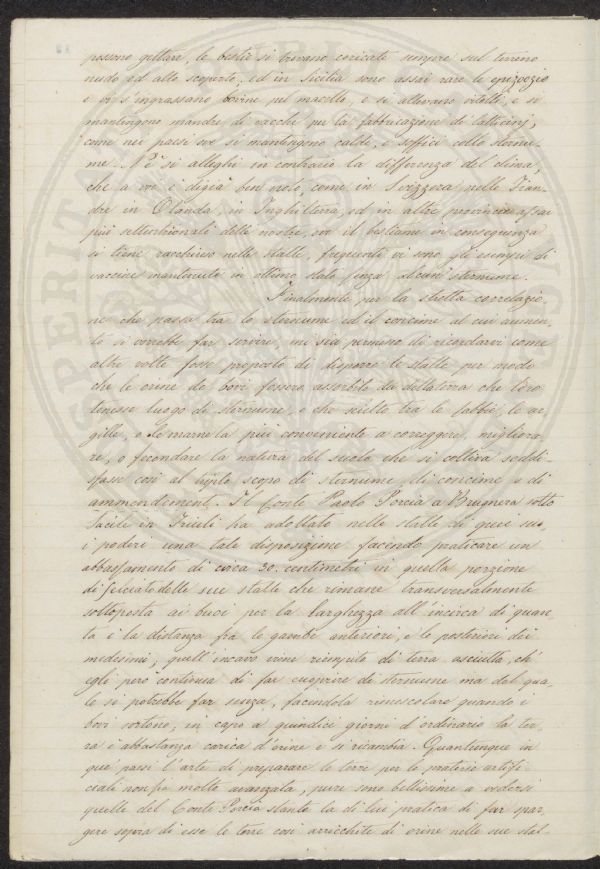 possono gettare, le bestie si trovano coricate sempre sul terreno
nudo ed allo scoperto, ed in Sicilia sono assai rare le epizoozie
e vi s'ingrassano bovine pel macello, e si allevano vitelli, e si
mantengono mandre di vacchi per la fabbricazione di latticinj,
come nei paesi ove si mantengono caldi, e soffici collo sternu-
me. Nè si alleghi in contrario la differenza del clima,
che a voi è digià ben noto, come in Svizzera nelle Fian-
dre in Olanda, in Inghilterra, ed in altre provincie assai
più settentrionali delle nostre, ove il bestiame in conseguenza
si tiene racchiuso nelle stalle, frequenti vi sono gli esempi di
vaccine mantenute in ottimo stato senza alcun sternume.
Finalmente per la stretta correlazio-
ne che passa tra lo sternume ed il concime al cui aumen-
to si vorrebbe far servire, mi sia permesso di ricordarvi come
altre volte fosse proposto di disporre le stalle per modo
che le orine de bovi fossero assorbite da della terra che loro
tenesse luogo di sternume, e che scielta tra le sabbie, le ar-
gille, o le marne la più conveniente a correggere, migliora-
re, o fecondare la natura del suolo che si coltiva soddi-
sfasse così al triplo scopo di sternume, di concime, e di
ammendement. Il Conte Paolo Porcia a Brugnera sotto
Sacile in Friuli ha adottato nelle stalle di quei suo-
i poderi una tale disposizione facendo praticare un
abbassamento di circa 30. centimetri in quella porzione
di selciato delle sue stalle che rimane transversalmente
sottoposta ai buoi per la larghezza all'incirca di quan-
ta è la distanza fra le gambe anteriori, e le posteriori dei
medesimi, quell'incavo viene riempito di terra asciutta, ch'
egli però continua di far cuoprire di sternume ma del qua-
le si potrebbe far senza, facendola rimescolare quando i
bovi sortono, in capo a quindici giorni d'ordinario la ter-
ra è abbastanza carica d'orine e si ricambia. Quantunque in
quei paesi l'arte di preparare le terre per le materie artifi-
ciali non sia molto avanzata, pure sono bellissime a vedersi
quelle del Conte Porcia stante la di lui pratica di far spar-
gere sopra di esse le terre così arricchite di orine nelle sue stal-